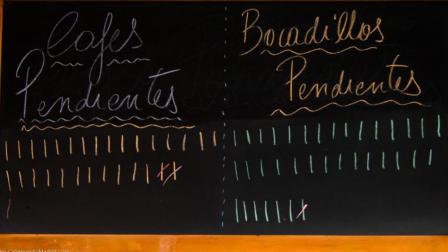 Cafes
Pendientes
Bocadillos
Pendientes